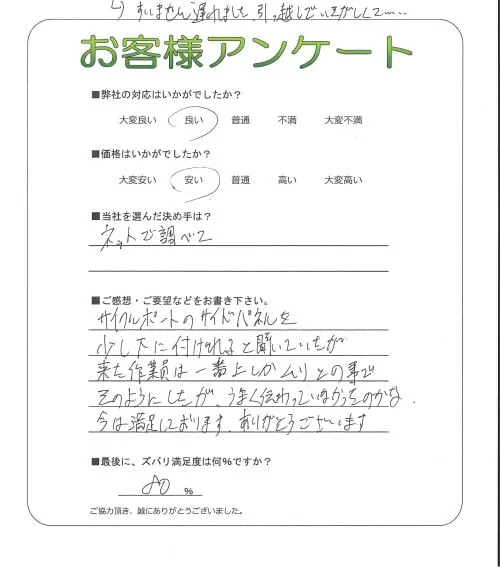 すいません遅れました、引っ越しでいそがしくて……
お客様アンケート
■弊社の対応はいかがでしたか?
大変良い 良い 普通 不満 大変不満
■価格はいかがでしたか?
大変安い 安い 普通 高い 大変高い
■当社を選んだ決め手は?
ネットで調べて
■ご感想・ご要望などをお書き下さい。
サイクルポートのサイドパネルを
少し下に付けれると聞いていたが
来た作業員は一番上しかムリとの事で
そのようにしたが、うまく伝わっていなかったのかな
今は満足しております、ありがとうございます
■最後に、ズバリ満足度は何%ですか?
%
ご協力頂き、誠にありがとうございました。